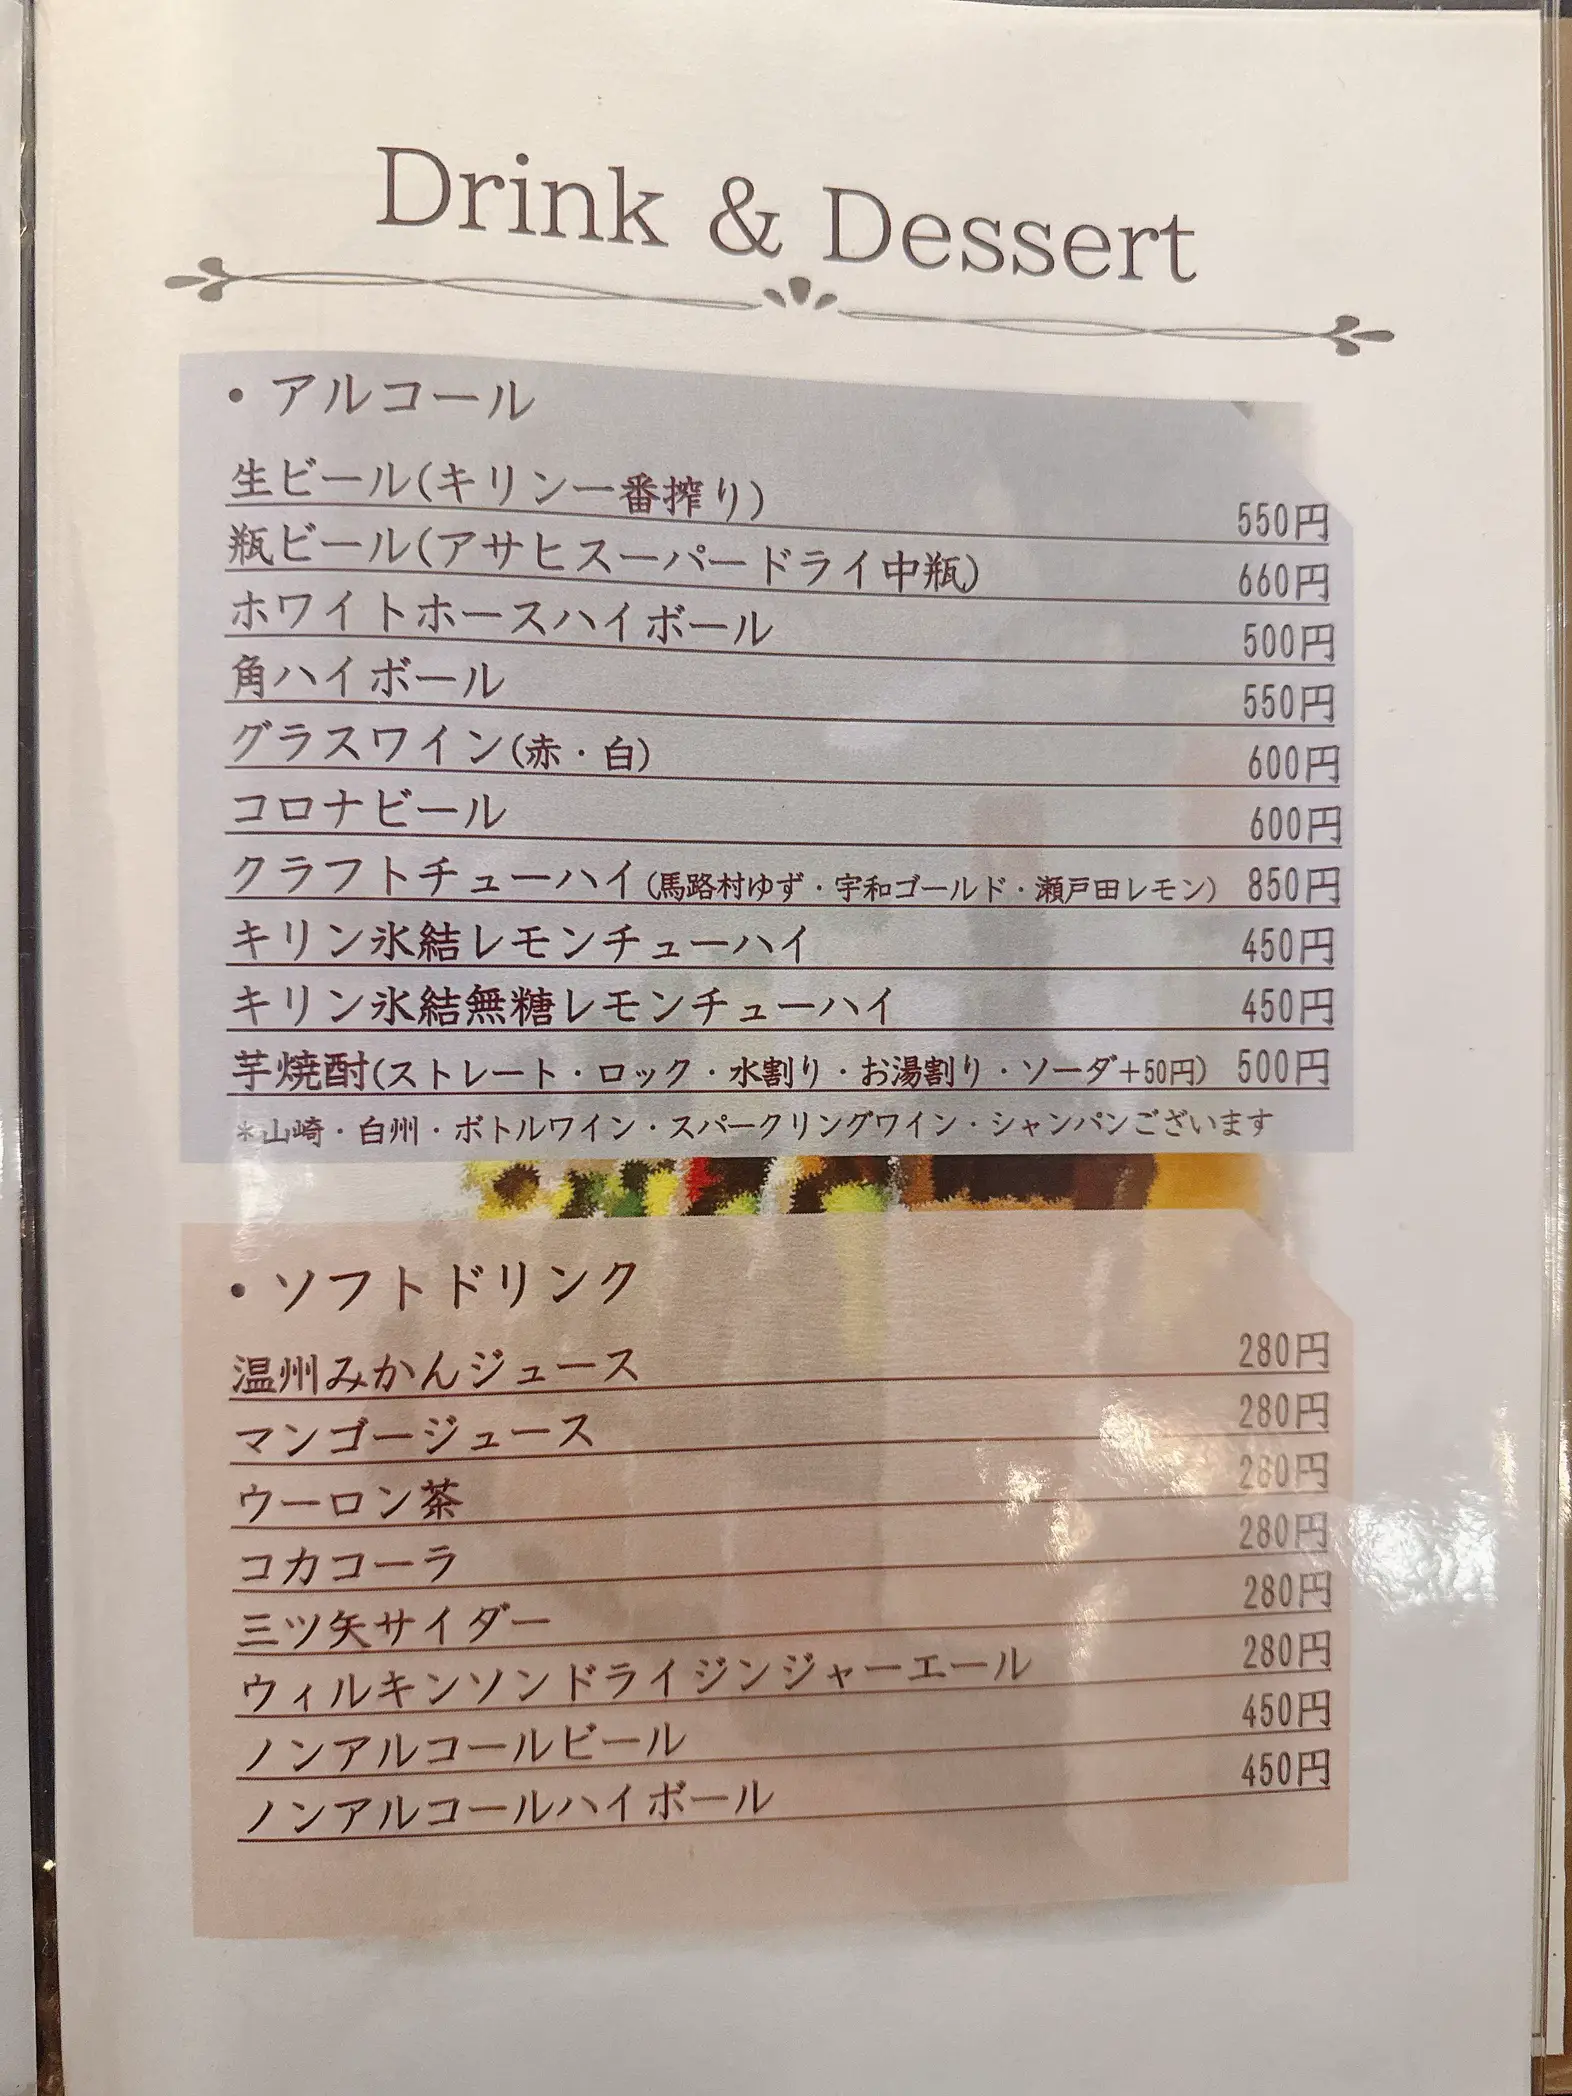 Drink & Dessert
・アルコール
生ビール(キリン一番搾り) 550円
瓶ビール(アサヒスーパードライ中瓶) 660円
ホワイトホースハイボール 500円
角ハイボール 550円
グラスワイン(赤・白) 600円
コロナビール 600円
クラフトチューハイ(馬路村ゆず・宇和ゴールド・瀬戸田レモン) 850円
キリン氷結レモンチューハイ 450円
キリン氷結無糖レモンチューハイ 450円
芋焼酎(ストレート・ロック・水割り・お湯割り・ソーダ+50円) 500円
*山崎・白州・ボトルワイン・スパークリングワイン・シャンパンございます
・ソフトドリンク
温州みかんジュース 280円
マンゴージュース 280円
ウーロン茶 280円
コカコーラ 280円
三ツ矢サイダー 280円
ウィルキンソンドライジンジャーエール 280円
ノンアルコールビール 450円
ノンアルコールハイボール 450円